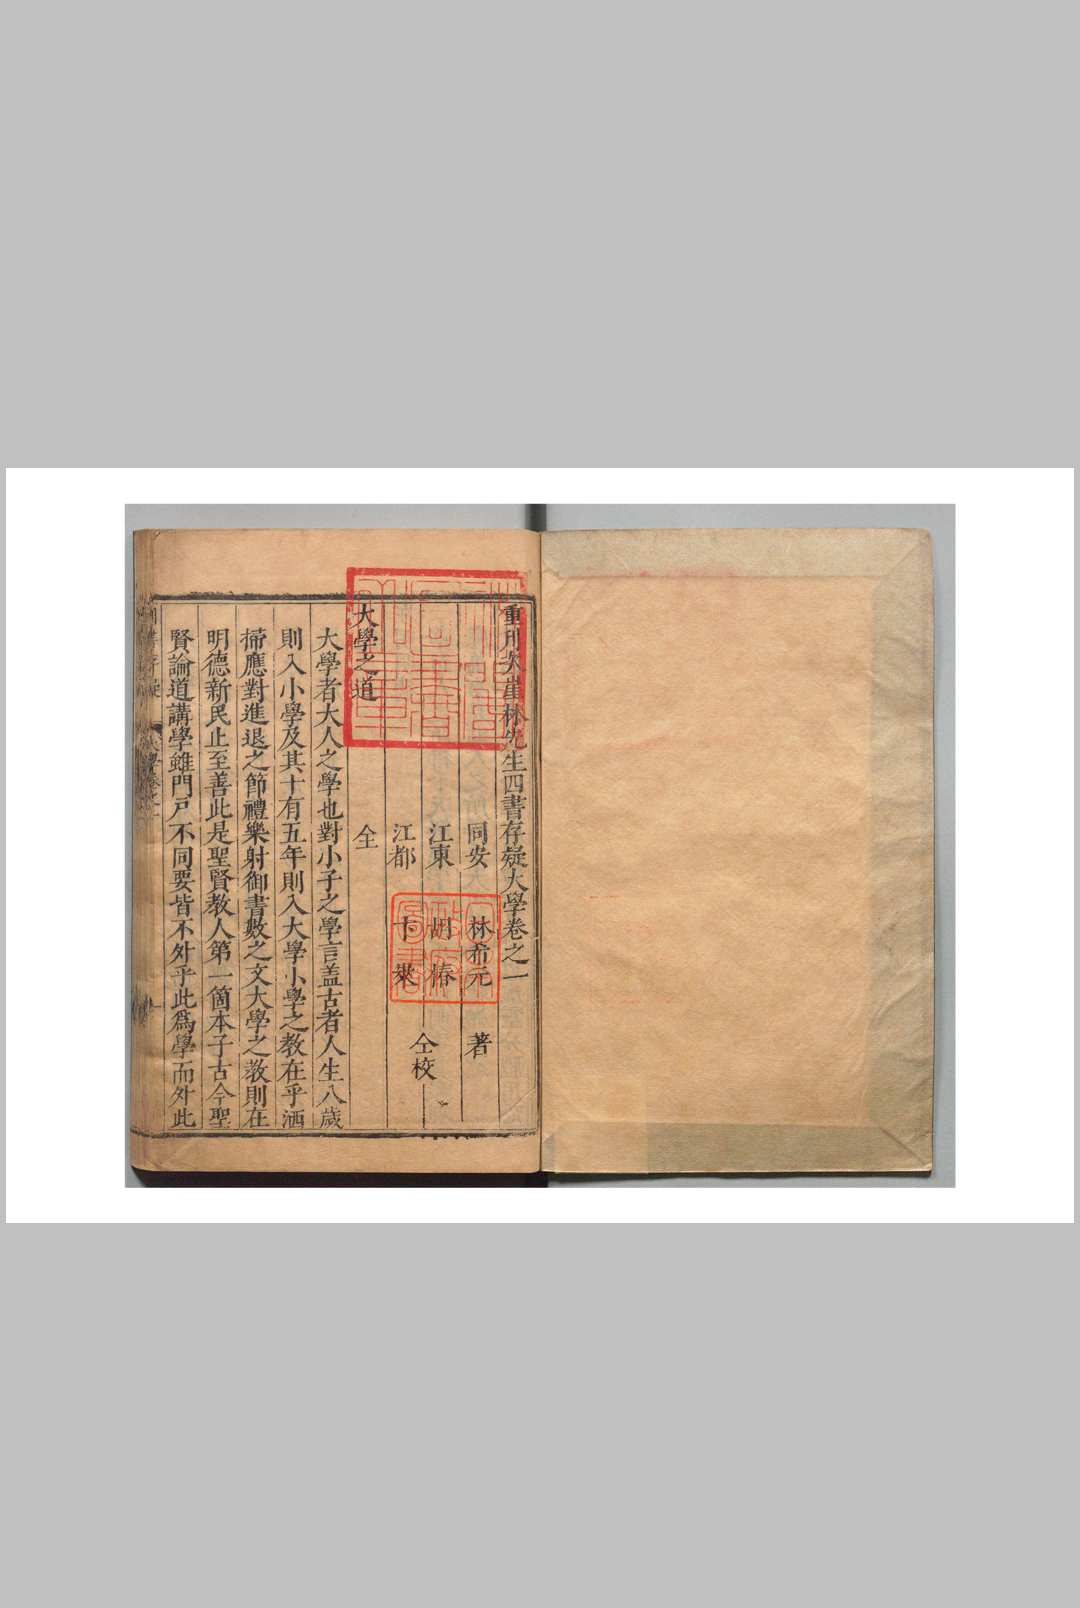 重刊次崖林先生四書存疑大學卷之一
同安 林希元 著
江東 胡椿
仝校
江都 卞崍
仝
大學之道
大學者大人之學也對小子之學言盖古者人生八歲
則入小學及其十有五年則入大學小學之教在乎洒
掃應對進退之節禮樂射御書數之文大學之教則在
明德新民止至善此是聖賢教人第一箇本子古今聖
賢論道講學雖門戶不同要皆不外乎此為學而外此